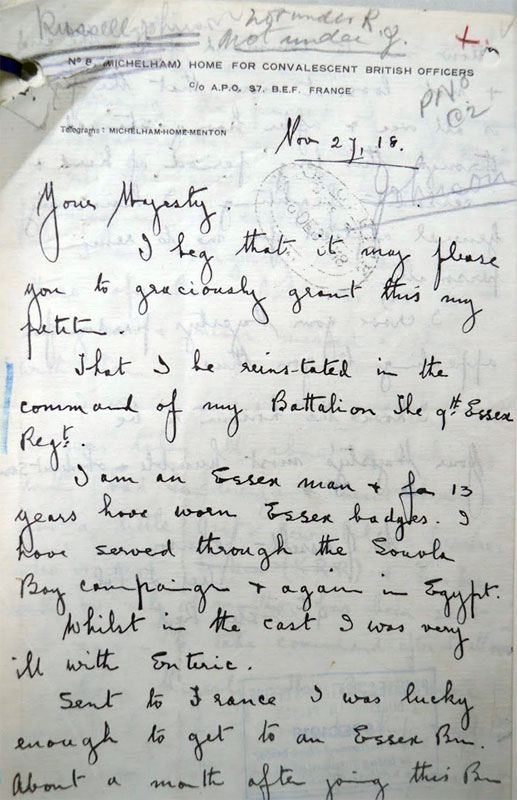 Russell
not under R
not under J.
No 8. (MICHELHAM) HOME FOR CONVALESCENT BRITISH OFFICERS
C/O A.P.O. S7. B.E.F. FRANCE
PN 8
C2
Telegrams: MICHELHAM-HOME-MENTON
Nov 27, 18.
Your Majesty.
I beg that it may please
you to graciously grant this my
petition.
That I be reinstated in the
command of my Battalion The 9th Essex
Regt.
I am an Essex man & for 13
years have worn Essex badges. I
have served through the Souvla
Bay campaign & again in Egypt.
Whilst in the east I was very
ill with Enteric.
Sent to France I was lucky
enough to get to an Essex Bn.
About a month after joing this Bn